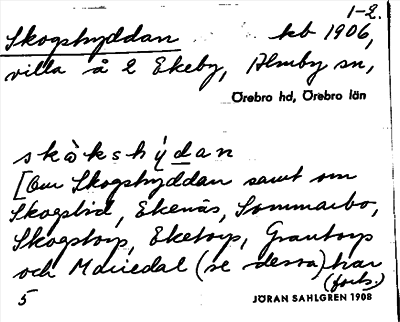 1-2.
Skogshyddan kb 1906,
villa å 2 Ekeby, Almby sn,
Örebro hd, Örebro län
skòkshýdan
[Om Skogshyddan samt om
Skogslid, Ekenäs, Sommarbo,
Skogstorp, Eketorp, Grantorp
och Mariedal (se dessa) har
(forts.)
5 JÖRAN SAHLGREN 1908